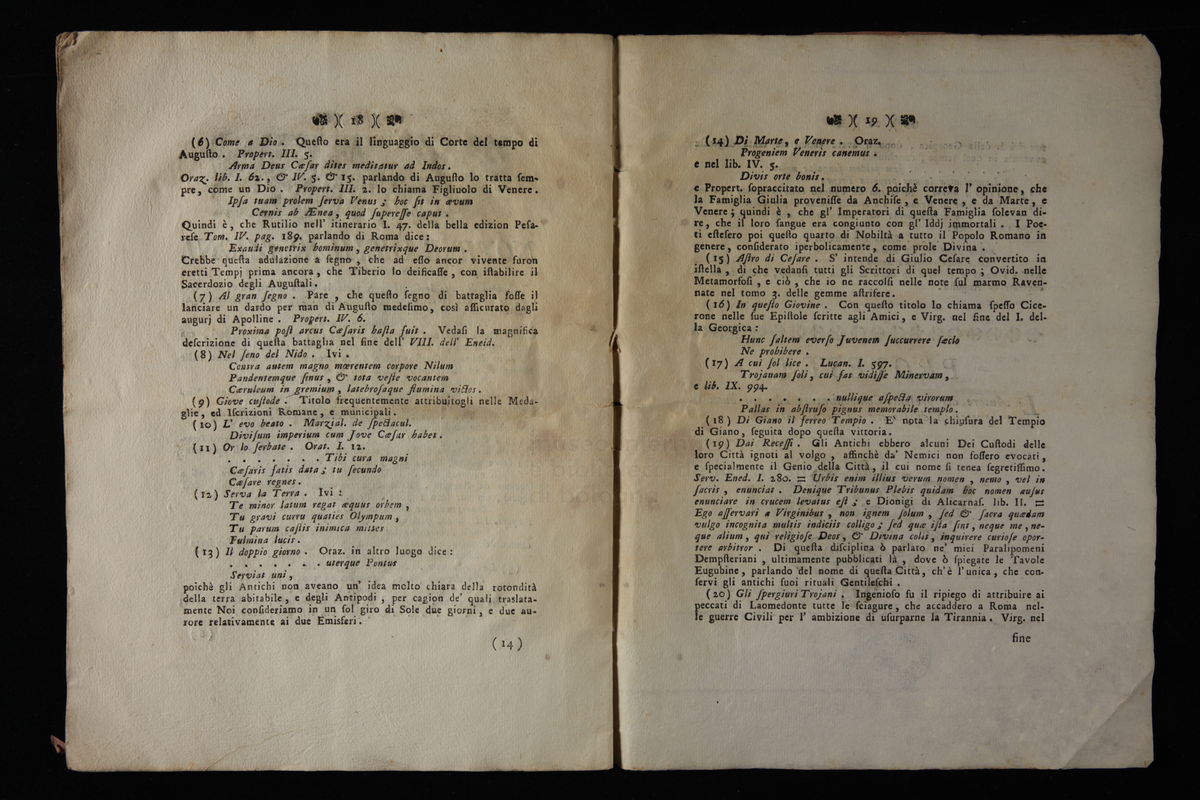 )( 18 )(
(6) Come a Dio . Queſto era il linguaggio di Corte del tempo di
Auguſto . Propert. III. 5.
Arma Deus Cæſar dites meditatur ad Indos .
Oraz. lib. I. 62. , & IV. 5. & 15. parlando di Auguſto lo tratta ſem-
pre, come un Dio . Propert. III. 2. lo chiama Figliuolo di Venere .
Ipſa tuam prolem ſerva Venus ; hoc ſit in ævum
Cernis ab Ænea , quod ſupereſſe caput .
Quindi è , che Rutilio nell' itinerario I. 47. della bella edizion Peſa-
reſe Tom. IV. pag. 189. parlando di Roma dice :
Exaudi genetrix hominum , genetrixque Deorum .
Crebbe queſta adulazione a ſegno , che ad eſſo ancor vivente furon
eretti Tempj prima ancora , che Tiberio lo deificaſſe , con iſtabilire il
Sacerdozio degli Auguſtali .
(7) Al gran ſegno . Pare , che queſto ſegno di battaglia foſſe il
lanciare un dardo per man di Auguſto medeſimo, così aſſicurato dagli
augurj di Apolline . Propert. IV. 6.
Proxima poſt arcus Cæſaris haſta fuit . Vedaſi la magnifica
deſcrizione di queſta battaglia nel fine dell' VIII. dell' Eneid.
(8) Nel ſeno del Nido . Ivi .
Contra autem magno mœrentem corpore Nilum
Pandentemque ſinus , & tota veſte vocantem
Cæruleum in gremium , latebroſaque flumina victos .
(9) Giove cuſtode . Titolo frequentemente attribuitogli nelle Meda-
glie, ed Iſcrizioni Romane, e municipali .
(10) L' evo beato . Marzial. de ſpectacul.
Diviſum imperium cum Jove Cæſar habet .
(11) Or lo ſerbate . Orat. I. 12.
. . . . . . . Tibi cura magni
Cæſaris fatis data ; tu ſecundo
Cæſare regnes .
(12) Serva la Terra . Ivi :
Te minor latum regat æquus orbem ,
Tu gravi curru quaties Olympum ,
Tu parum caſtis inimica mittes
Fulmina lucis .
(13) Il doppio giorno . Oraz. in altro luogo dice :
. . . . . . . uterque Pontus
Serviat uni ,
poichè gli Antichi non aveano un' idea molto chiara della rotondità
della terra abitabile , e degli Antipodi , per cagion de' quali traslata-
mente Noi conſideriamo in un ſol giro di Sole due giorni , e due au-
rore relativamente ai due Emisferi .
(14)
)( 19 )(
(14) Di Marte, e Venere . Oraz.
Progeniem Veneris canemus .
e nel lib. IV. 5.
Divis orte bonis .
e Propert. ſopraccitato nel numero 6. poichè correva l' opinione, che
la Famiglia Giulia proveniſſe da Anchiſe , e Venere , e da Marte, e
Venere ; quindi è , che gl' Imperatori di queſta Famiglia ſolevan di-
re, che il loro ſangue era congiunto con gl' Iddj immortali . I Poe-
ti eſteſero poi queſto quarto di Nobiltà a tutto il Popolo Romano in
genere, conſiderato iperbolicamente, come prole Divina .
(15) Aſtro di Ceſare . S' intende di Giulio Ceſare convertito in
iſtella , di che vedanſi tutti gli Scrittori di quel tempo ; Ovid. nelle
Metamorfoſi , e ciò , che io ne raccolſi nelle note ſul marmo Raven-
nate nel tomo 3. delle gemme aſtrifere.
(16) In queſto Giovine . Con queſto titolo lo chiama ſpeſſo Cice-
rone nelle ſue Epiſtole ſcritte agli Amici, e Virg. nel fine del I. del-
la Georgica :
Hunc ſaltem everſo Juvenem ſuccurrere ſæclo
Ne prohibere .
(17) A cui ſol lice . Lucan. I. 597.
Trojanam ſoli, cui fas vidiſſe Minervam ,
e lib. IX. 994.
. . . . . . . nullique aſpecta virorum
Pallas in abſtruſo pignus memorabile templo .
(18) Di Giano il ferreo Tempio . E' nota la chiuſura del Tempio
di Giano, ſeguita dopo queſta vittoria .
(19) Dai Receſſi . Gli Antichi ebbero alcuni Dei Cuſtodi delle
loro Città ignoti al volgo , affinchè da' Nemici non foſſero evocati,
e ſpecialmente il Genio della Città, il cui nome ſi tenea ſegretiſſimo.
Serv. Ened. I. 280. = Urbis enim illius verum nomen , nemo , vel in
ſacris , enunciat . Denique Tribunus Plebis quidam hoc nomen auſus
enunciare in crucem levatus eſt ; e Dionigi di Alicarnaſ. lib. II. =
Ego aſſervari a Virginibus , non ignem ſolum , ſed & ſacra quædam
vulgo incognita multis indiciis colligo ; ſed quæ iſta ſint, neque me, ne-
que alium, qui religioſe Deos, & Divina colit, inquirere curioſe opor-
tere arbitror . Di queſta diſciplina ò parlato ne' miei Paralipomeni
Dempſteriani , ultimamente pubblicati là , dove ò ſpiegate le Tavole
Eugubine , parlando del nome di queſta Città, ch'è l'unica, che con-
ſervi gli antichi ſuoi rituali Gentileſchi .
(20) Gli ſpergiuri Trojani . Ingenioſo fu il ripiego di attribuire ai
peccati di Laomedonte tutte le ſciagure, che accaddero a Roma nel-
le guerre Civili per l' ambizione di uſurparne la Tirannia . Virg. nel
fine